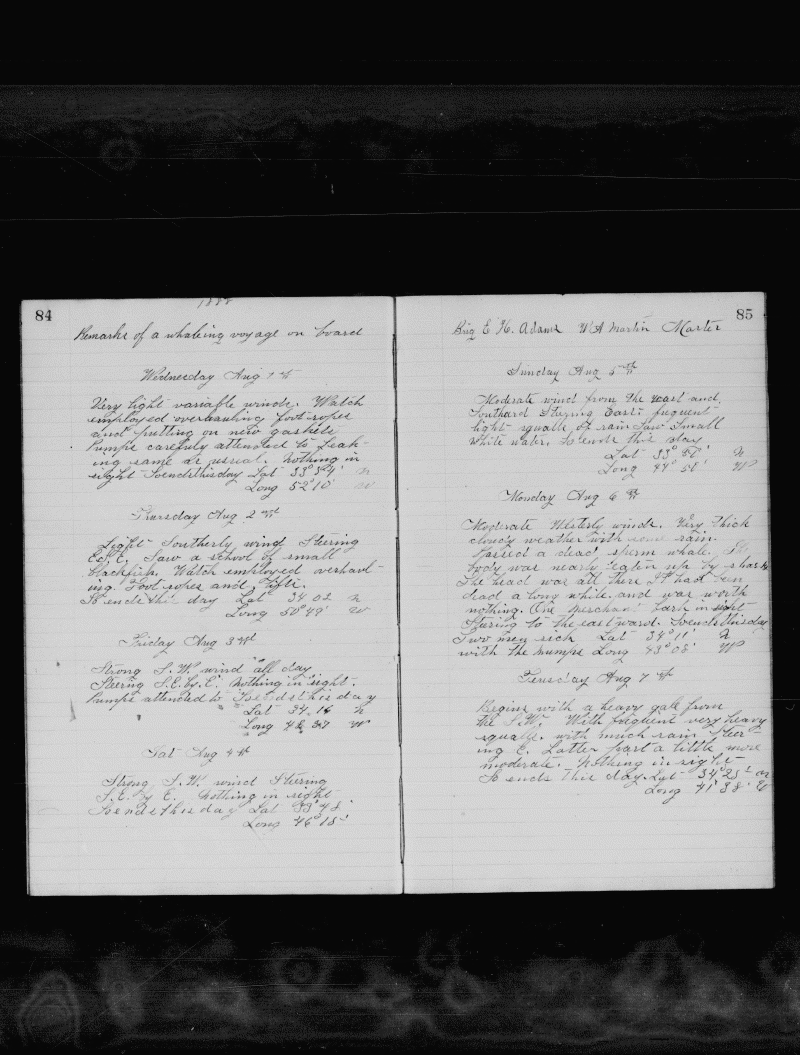 84
1888
Remarks of a whaleing voyage on board
Wednesday Aug 1st
Very light variable winds. Watch
employed overhauling foot-ropes
and putting on new gaskets
Pumps carefully attended to Leak-
ing same as usual. Nothing in
sight Soendsthisday Lat 33° 54' N
Long 52° 10' W
Thursday Aug 2nd
Light Southerly wind Steering
E. Saw a school of small
blackfish. Watch employed overhaul-
ing Foot ropes and
So ends this day Lat 34 02 N
Long 50° 49' W
Friday Aug 3rd
Strong S.W. wind all day
Steering S.E. by E. Nothing in sight.
Pumps attended to Soendsthisday
Lat 34. 16 N
Long 48 37 W
Sat Aug 4th
Strong S.W. wind Steering
S.E. by E. Nothing in sight
Soendsthisday Lat 33° 48'
Long 46° 15'
85
Brig E. H. Adams W A Martin Master
Sunday Aug 5th
Moderate wind from the East and
Southard Steering East: frequent
light squalls of rain Saw Small
White water, So ends this day
Lat 33° 50' N
Long 44° 50' W
Monday Aug 6th
Moderate Westerly winds. Very thick
cloudy weather with some rain.
Passed a dead, sperm whale.
body was nearly eaten up by sharks
The head was all there It had been
dead a long while and was worth
nothing. One Merchant bark in sight
Steering to the eastward. Soendsthisday
Two men sick Lat 34° 11' N
with the mumps Long 43° 08' W
Tuesday Aug 7th
Begins with a heavy gale from
the S.W. With frequent very heavy
squalls. with much rain Steer-
ing E. Latter part a little more
moderate. Nothing in sight
So ends this day. Lat 34° 25'
Long 41° 38' W